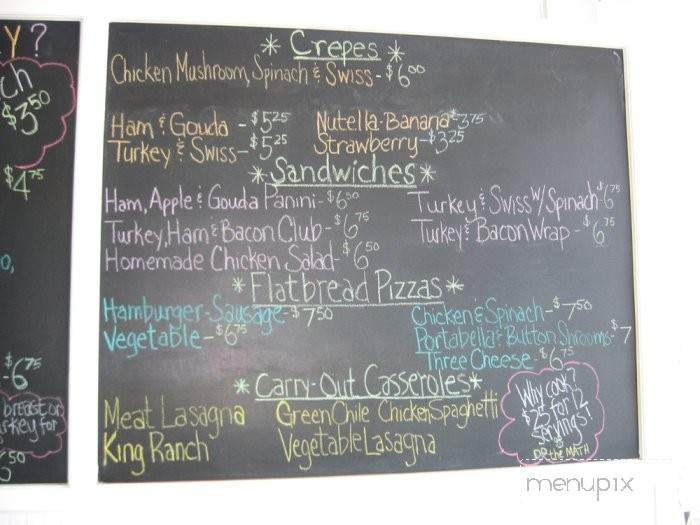 Y?
ch
$3.50
$4.75
0,
-6.75
breast or
rkey for
50
* Crepes *
Chicken Mushroom, Spinach & Swiss - $6.00
Ham & Gouda - $5.25 Nutella-Banana $3.75
Turkey & Swiss - $5.25 Strawberry - $3.25
* Sandwiches *
Ham, Apple & Gouda Panini - $6.50 Turkey & Swiss w/ Spinach $6.75
Turkey, Ham & Bacon Club - $6.75 Turkey & Bacon Wrap - $6.75
Homemade Chicken Salad - $6.50
* Flatbread Pizzas *
Hamburger-Sausage - $7.50 Chicken & Spinach - $7.50
Vegetable - $6.75 Portabella & Button Shrooms - $7
Three Cheese - $6.75
* Carry-Out Casseroles *
Meat Lasagna Green Chile Chicken Spaghetti
King Ranch Vegetable Lasagna
Why cook?
$25 for 12
servings!
DO the MATH
menupix